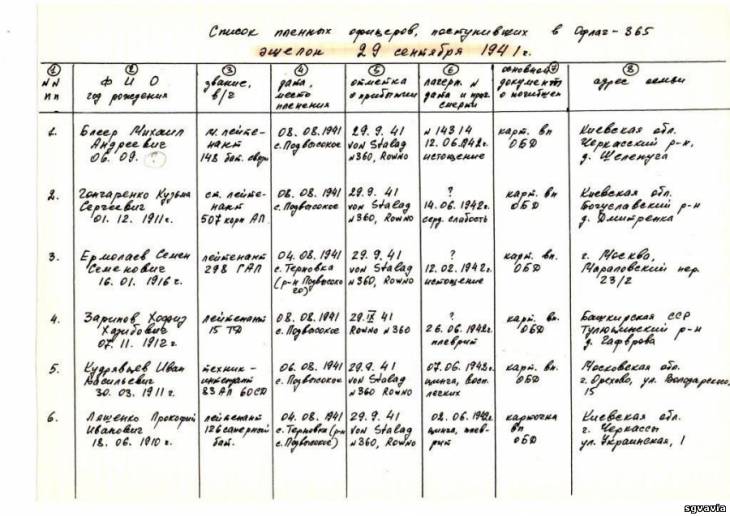 Список пленных офицеров, поступивших в Офлаг-365
эшелон 29 сентября 1941г.
① ② ③ ④ ⑤ ⑥ ⑦ ⑧
NN пп
Ф И О
год рождения
звание,
в/г
дата,
место
пленения
отметка
о прибытии
лагерн. N
дата и
смерти
основной
документ
о погибшем
адрес семьи
1.
Михаил
Андреевич
06. 09.
м. лейте-
нант
148 бат. связи
08. 08. 1941
с. Подвысокое
29. 9. 41
von Stalag
N360, Rowno
N 14314
12. 06. 1942г.
истощение
карт. вп
ОБД
Киевская обл.
Черкасский р-н,
д.
2.
Гончаренко Кузьма
Сергеевич
01. 12. 1911г.
ст. лейте-
нант
507 корп АП
08. 08. 1941
с. Подвысокое
29. 9. 41
von Stalag
N360, Rowno
?
14. 06. 1942г.
серд. слабость
карт. вп
ОБД
Киевская обл.
Богуславский р-н
д. Дмитренка
3.
Ермолаев Семен
Семенович
16. 01. 1916г.
лейтенант
298 ГАП
04. 08. 1941
с. Терновка
(р-н Подвысоко
го)
29. 9. 41
von Stalag
N360, Rowno
?
12. 02. 1942г.
истощение
карт. вп
ОБД
г. Москва,
пер.
23/2
4.
Зарипов
07. 11. 1912г.
лейтенант
15 ТД
08. 08. 1941
с. Подвысокое
29. IX 41
Rowno N360
?
26. 06. 1942г.
плеврит
карт. вп
ОБД
Башкирская ССР
р-н
д.
5.
Кудрявцев Иван
Васильевич
30. 03. 1911г.
техник-
интендант
83 АП 60СД
06. 08. 1941
с. Подвысокое
29. 9. 41
von Stalag
N360, Rowno
07. 06. 1942г.
цинга, восп.
легких
карт. вп
ОБД
Московская обл.
г. Орехово, ул. Володарского,
15
6.
Лященко Прокофий
Иванович
18. 06. 1910г.
лейтенант
126 саперный
бат.
04. 08. 1941
с. Терновка (р-н
с. Подвысокое)
29. 9. 41
von Stalag
N360, Rowno
02. 06. 1942г.
цинга, плев-
рит
карточка
вп
ОБД
Киевская обл.
г. Черкассы
ул. Украинская, 1
sgvavia